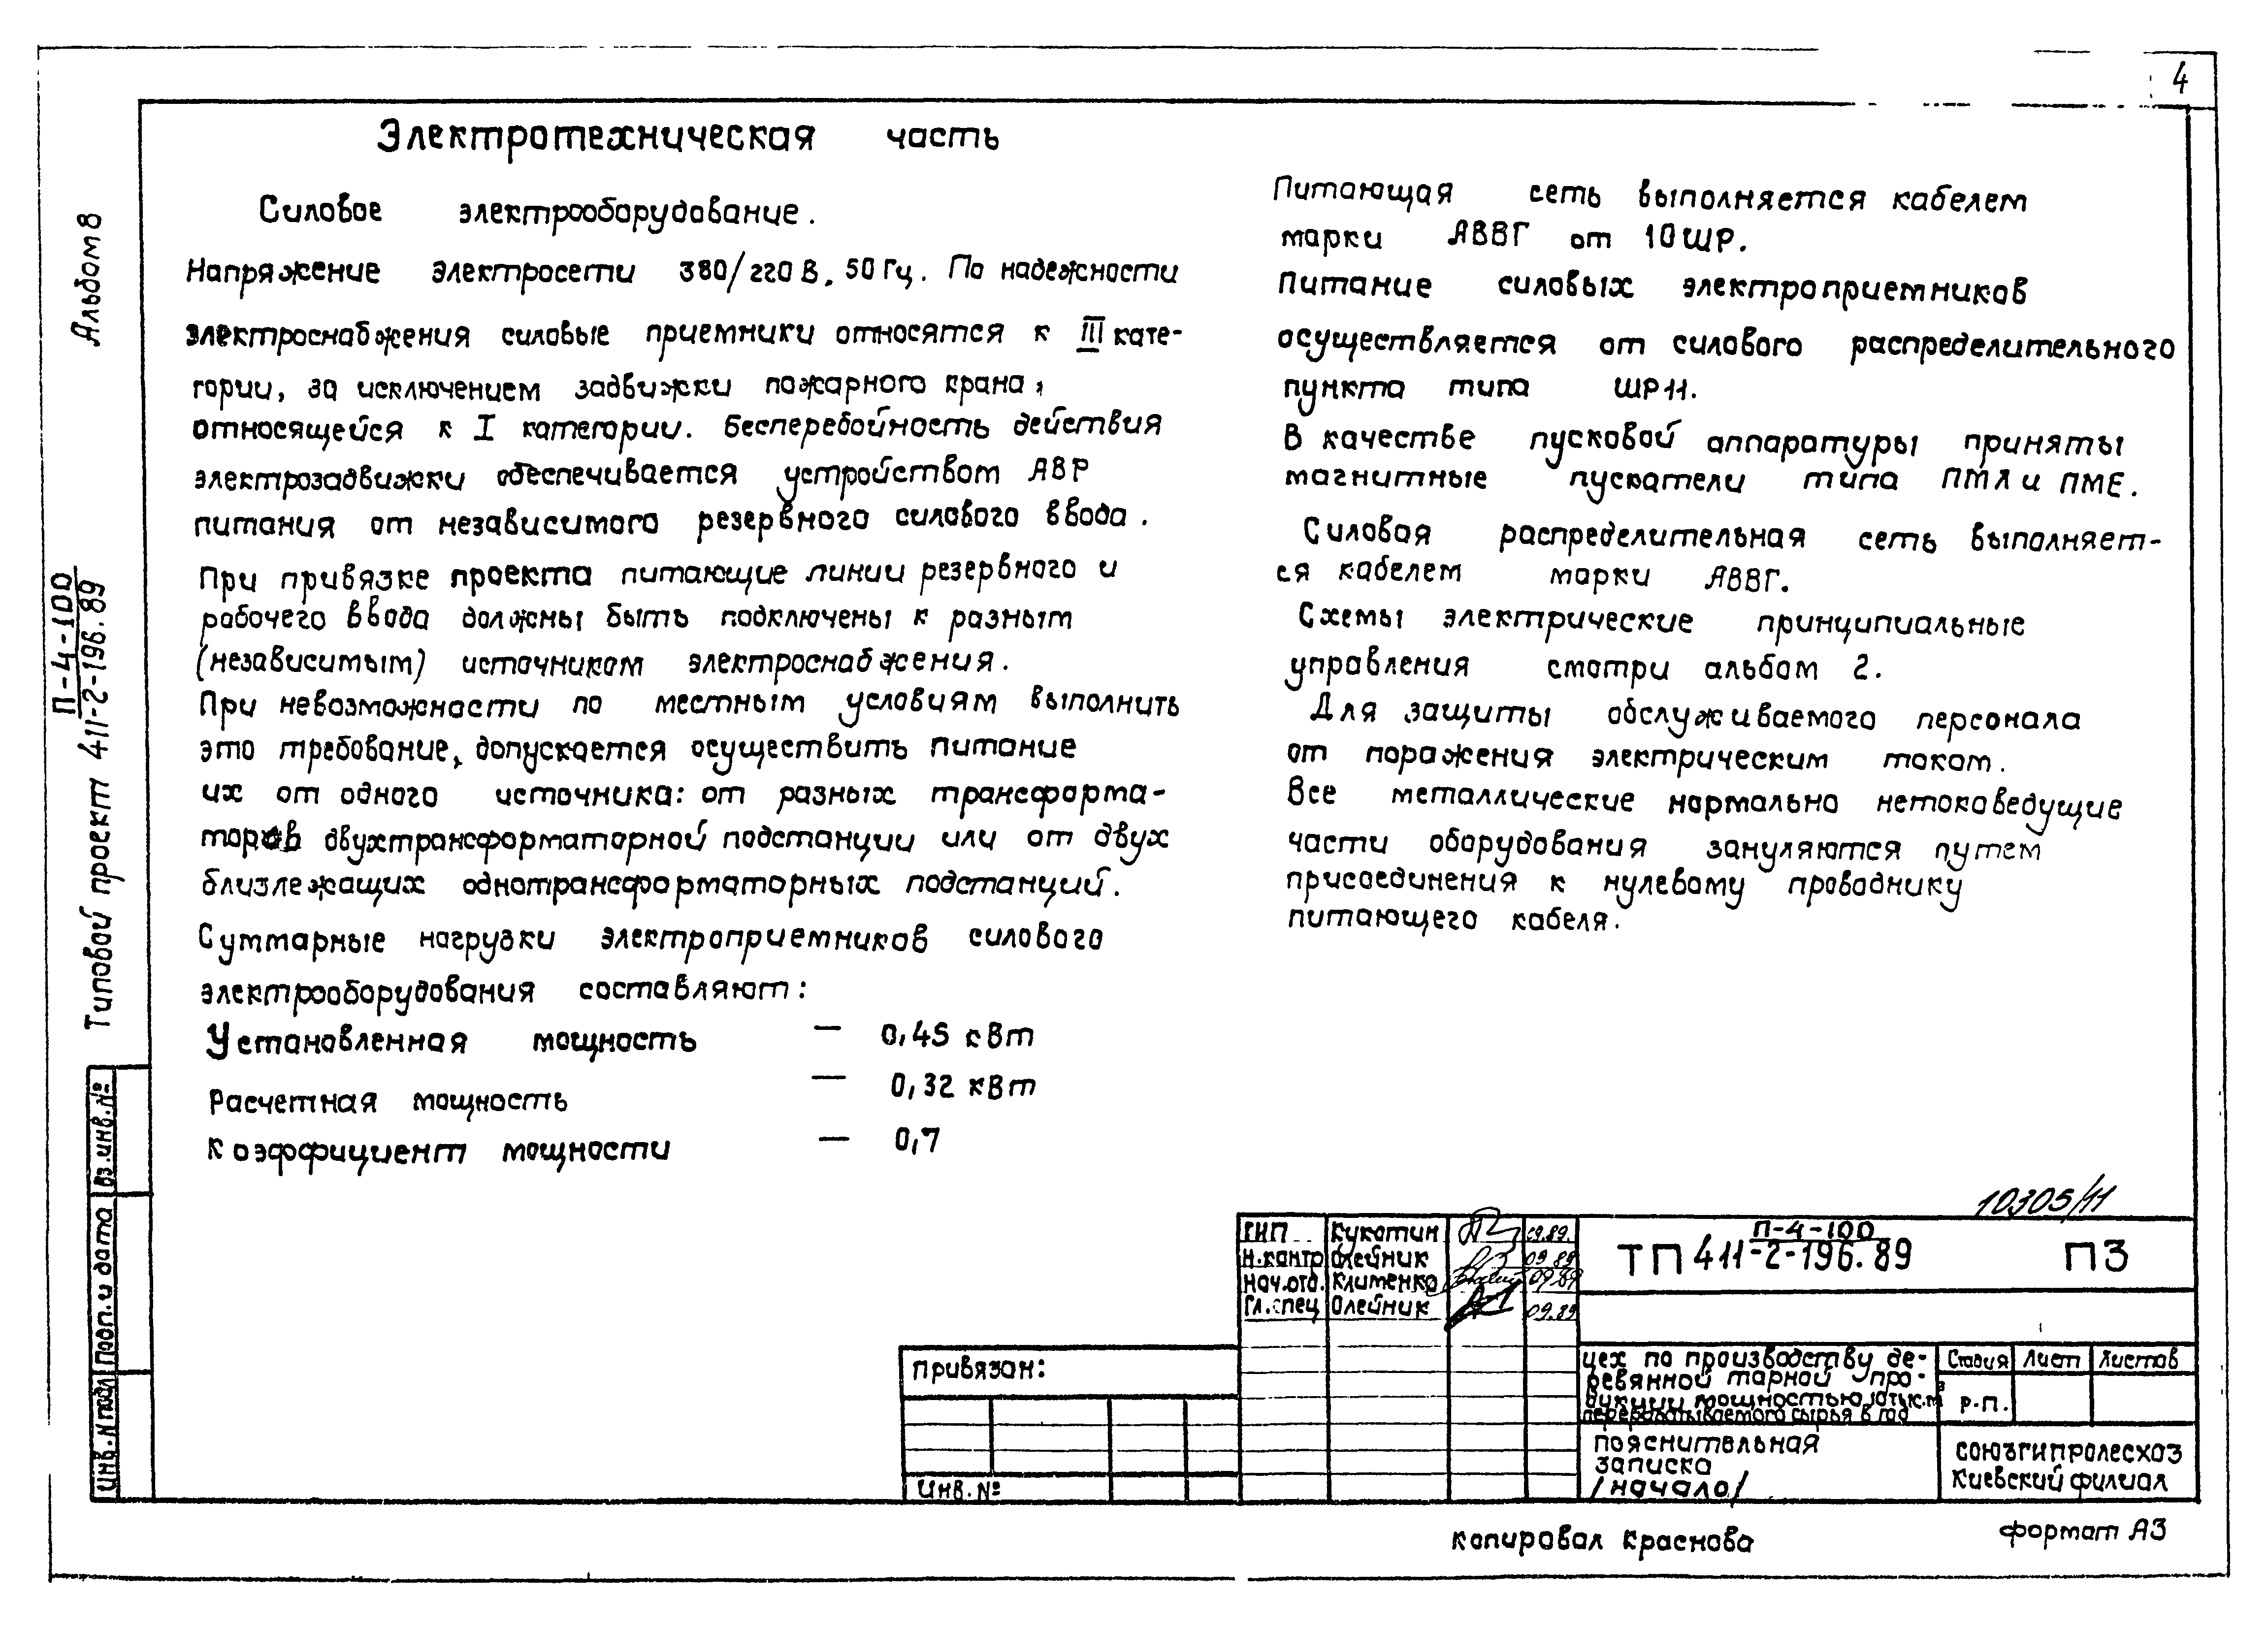 4
Электротехническая часть
Силовое электрооборудование.
Напряжение электросети 380/220 В, 50 Гц. По надежности
электроснабжения силовые приемники относятся к III кате-
гории, за исключением задвижки пожарного крана,
относящейся к I категории. Бесперебойность действия
электрозадвижки обеспечивается устройством АВР
питания от независимого резервного силового ввода.
При привязке проекта питающие линии резервного и
рабочего ввода должны быть подключены к разным
(независимым) источникам электроснабжения.
При невозможности по местным условиям выполнить
это требование, допускается осуществить питание
их от одного источника: от разных трансформа-
торов двухтрансформаторной подстанции или от двух
близлежащих однотрансформаторных подстанций.
Суммарные нагрузки электроприемников силового
электрооборудования составляют:
Установленная мощность — 0,45 кВт
Расчетная мощность — 0,32 кВт
Коэффициент мощности — 0,7
Питающая сеть выполняется кабелем
марки АВВГ от 10ШР.
Питание силовых электроприемников
осуществляется от силового распределительного
пункта типа ШР11.
В качестве пусковой аппаратуры приняты
магнитные пускатели типа ПМЛ и ПМЕ.
Силовая распределительная сеть выполняет-
ся кабелем марки АВВГ.
Схемы электрические принципиальные
управления смотри альбом 2.
Для защиты обслуживаемого персонала
от поражения электрическим током.
Все металлические нормально нетоковедущие
части оборудования зануляются путем
присоединения к нулевому проводнику
питающего кабеля.
Альбом 8
Типовой проект П-4-100
411-2-196.89
Вз.инв.№
Подп. и дата
Инв. N подл
10305/11
ГИП Кукотин 09.89.
Н.контр Олейник 09.89
Нач.отд. Клименко 09.89
Гл.спец Олейник 09.89
П-4-100
ТП 411-2-196.89 ПЗ
Привязан:
Инв. №
Цех по производству де-
ревянной тарной про-
дукции мощностью 10тыс.м³
перерабатываемого сырья в год
Стадия Лист Листов
Р.П.
Пояснительная
записка
/начало/
Союзгипролесхоз
Киевский филиал
Копировал Краснова
Формат А3